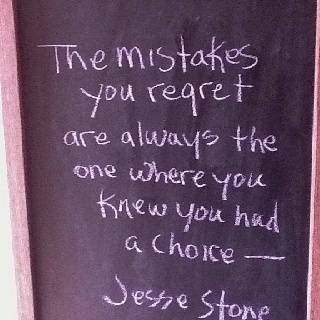 The mistakes
you regret
are always the
one where you
knew you had
a choice —
Jesse Stone